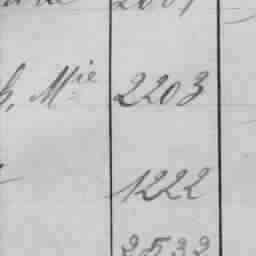 b, Mie 2203
1222
2532